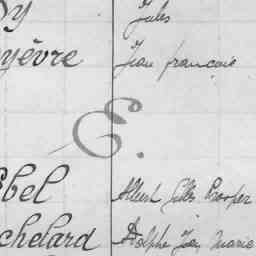 y Jules
yèvre Jean françois
E.
bel Albert Gilles Prosper
chelard Adolphe Jean Marie